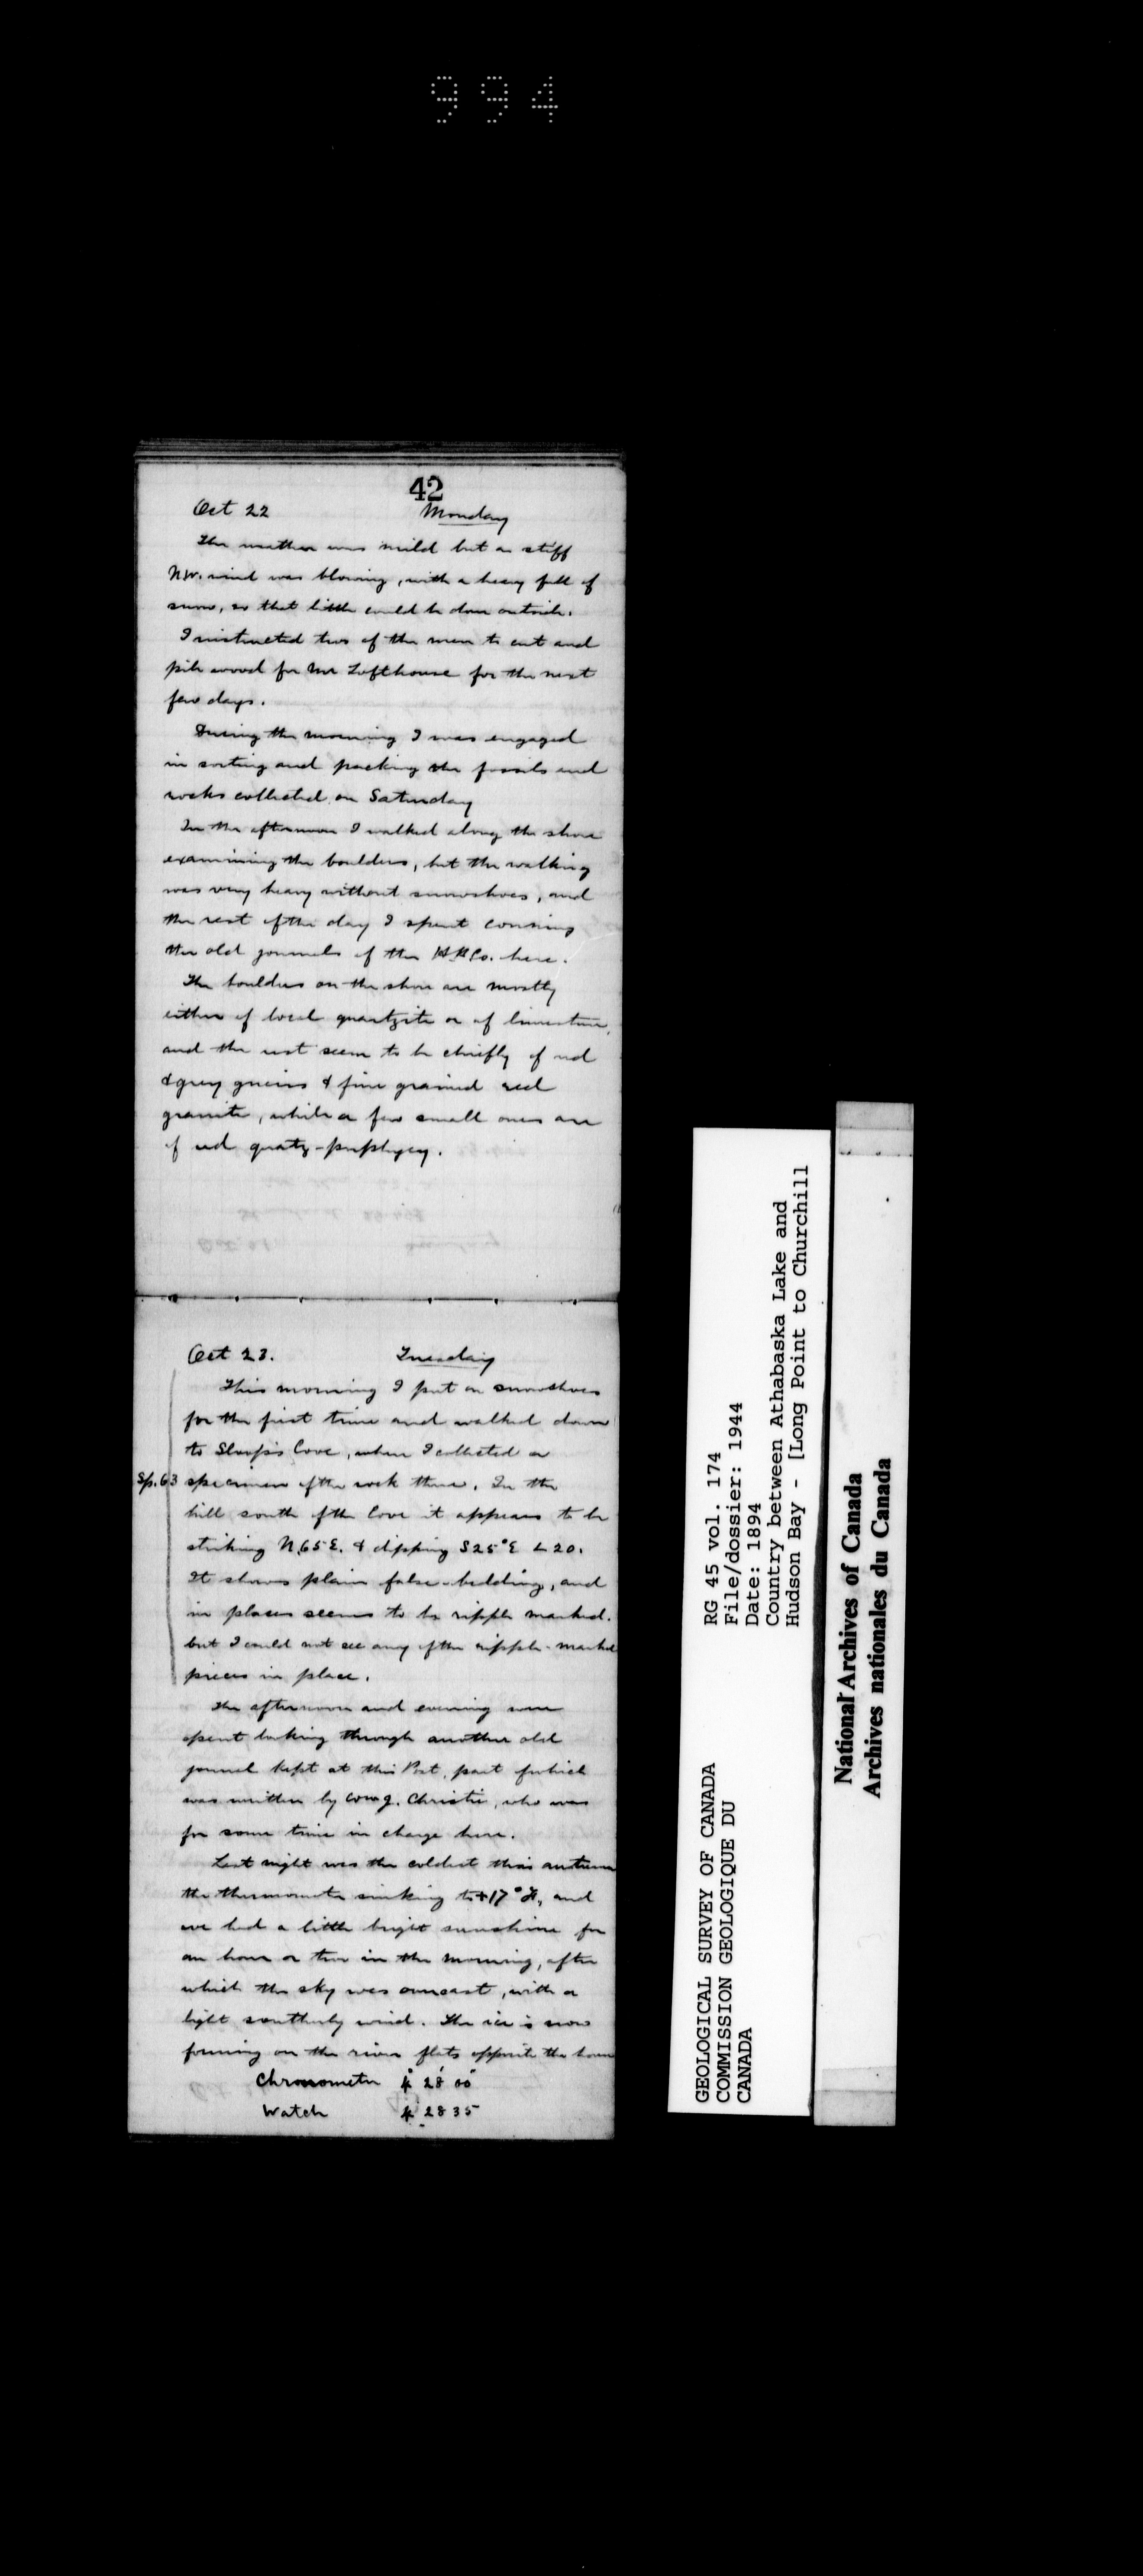 994
42
Oct 22 Monday
The weather was mild but a stiff
N.W. wind was blowing, with a heavy fall of
snow, so that little could be done outside.
I instructed two of the men to cut and
pile wood for Mr Lofthouse for the next
few days.
During the morning I was engaged
in sorting and packing the fossils and
rocks collected on Saturday
In the afternoon I walked along the shore
examining the boulders, but the walking
was very heavy without snowshoes, and
the rest of the day I spent conning
the old journals of the H B Co. here.
The boulders on the shore are mostly
either of local quartzite or of limestone,
and the rest seem to be chiefly of red
& grey gneiss & fine grained red
granite, while a few small ones are
of red quatz-porphyry.
Oct 23. Tuesday
This morning I put on snowshoes
for the first time and walked down
to Sloop's Cove, where I collected a
Sp. 63 specimen of the rock there. In the
hill south of the Cove it appears to be
striking N.65E. & dipping S25°E ∠20.
It shows plain false-bedding, and
in places seems to be ripple marked.
but I could not see any of the ripple-marked
pieces in place.
The afternoon and evening were
spent looking through another old
journal kept at this Post, part of which
was written by Christie, who was
for some time in charge here.
Last night was the coldest this autumn
the thermometer sinking to +17°F., and
we had a little bright sunshine for
an hour or two in the morning, after
which the sky was overcast, with a
light southerly wind. The ice is now
forming on the river flats opposite the house
Chronometer 4 28 00
Watch 4 28 35
GEOLOGICAL SURVEY OF CANADA
COMMISSION GEOLOGIQUE DU
CANADA
RG 45 vol. 174
File/dossier: 1944
Date: 1894
Country between Athabaska Lake and
Hudson Bay - [Long Point to Churchill
National Archives of Canada
Archives nationales du Canada